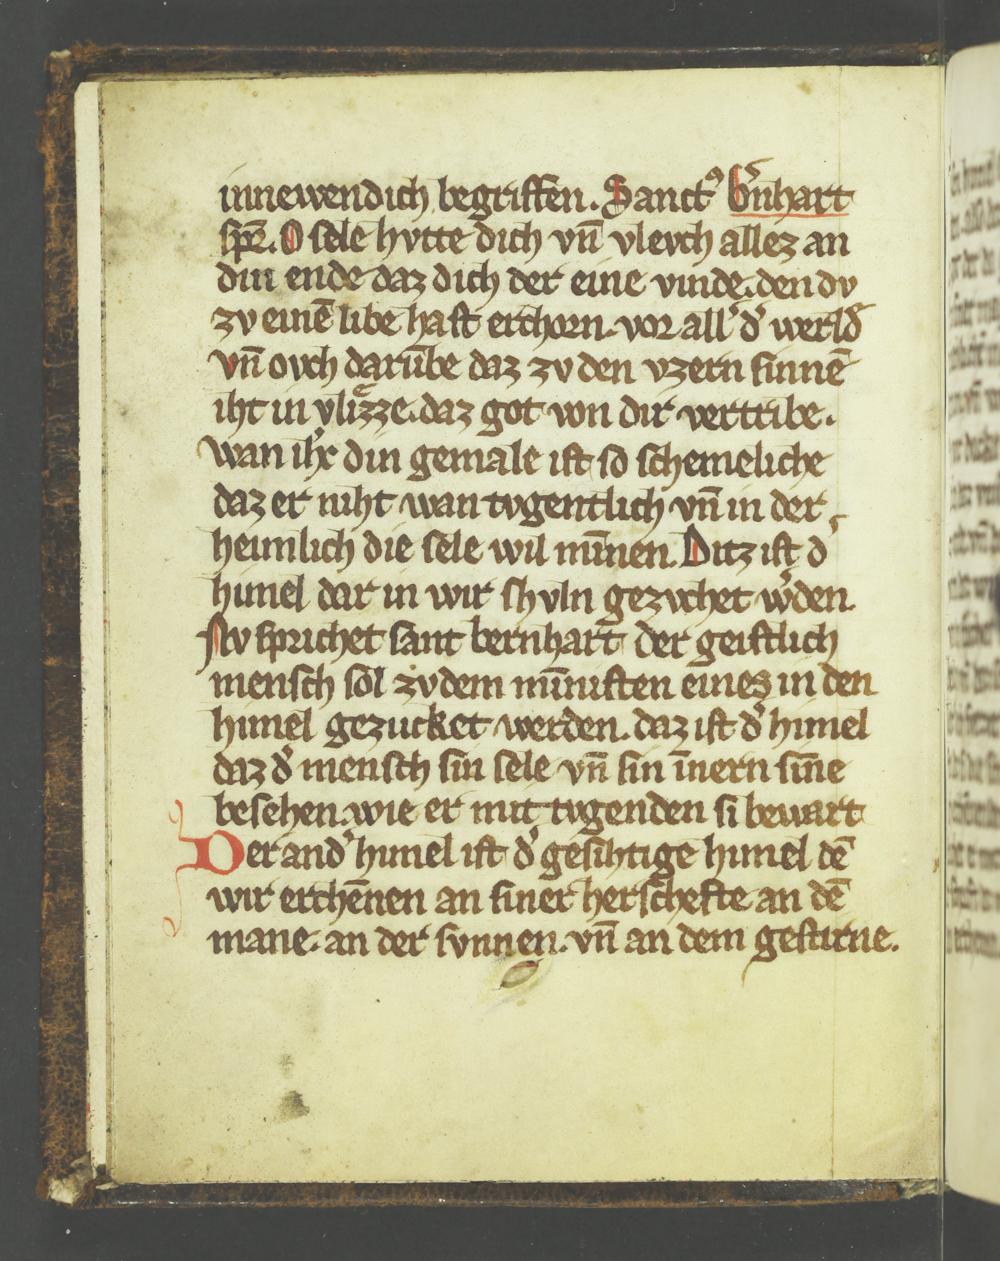 innewendich begriffen. Sanctꝰ b̾nhart
sp̄ꝛ. O sele hvtte dich vn̄ vlevch allez an
din ende daz dich der eine vinde. den dv
zv einē libe haft erchorn. vor all̾ d̾ werld̾
vn̄ ovch darūbe daz zv den vzern sinnē
iht in vlizze. daz got von dir vertribe.
wan ih̾x din gemale ist so schemeliche
daz er niht wan tvgentlich vn̄ in der
heimlich die sele wil mīnen. Ditz ist d̾
himel dar in wir shvln gezvchet w̾den.
Nv sprichet sant bernhart der geistlich
mensch sol zvdem mīnisten eines in den
himel gezucket werden. daz ist d̾ himel
daz d̾ mensch sin sele vn̄ sin īnern sīne
besehen. wie er mit tvgenden si bewart
Der and̾ himel ist d̾ gesihtige himel dē
wir erchēnen an siner herschefte an dē
mane. an der svnnen. vn̄ an dem gestirne.